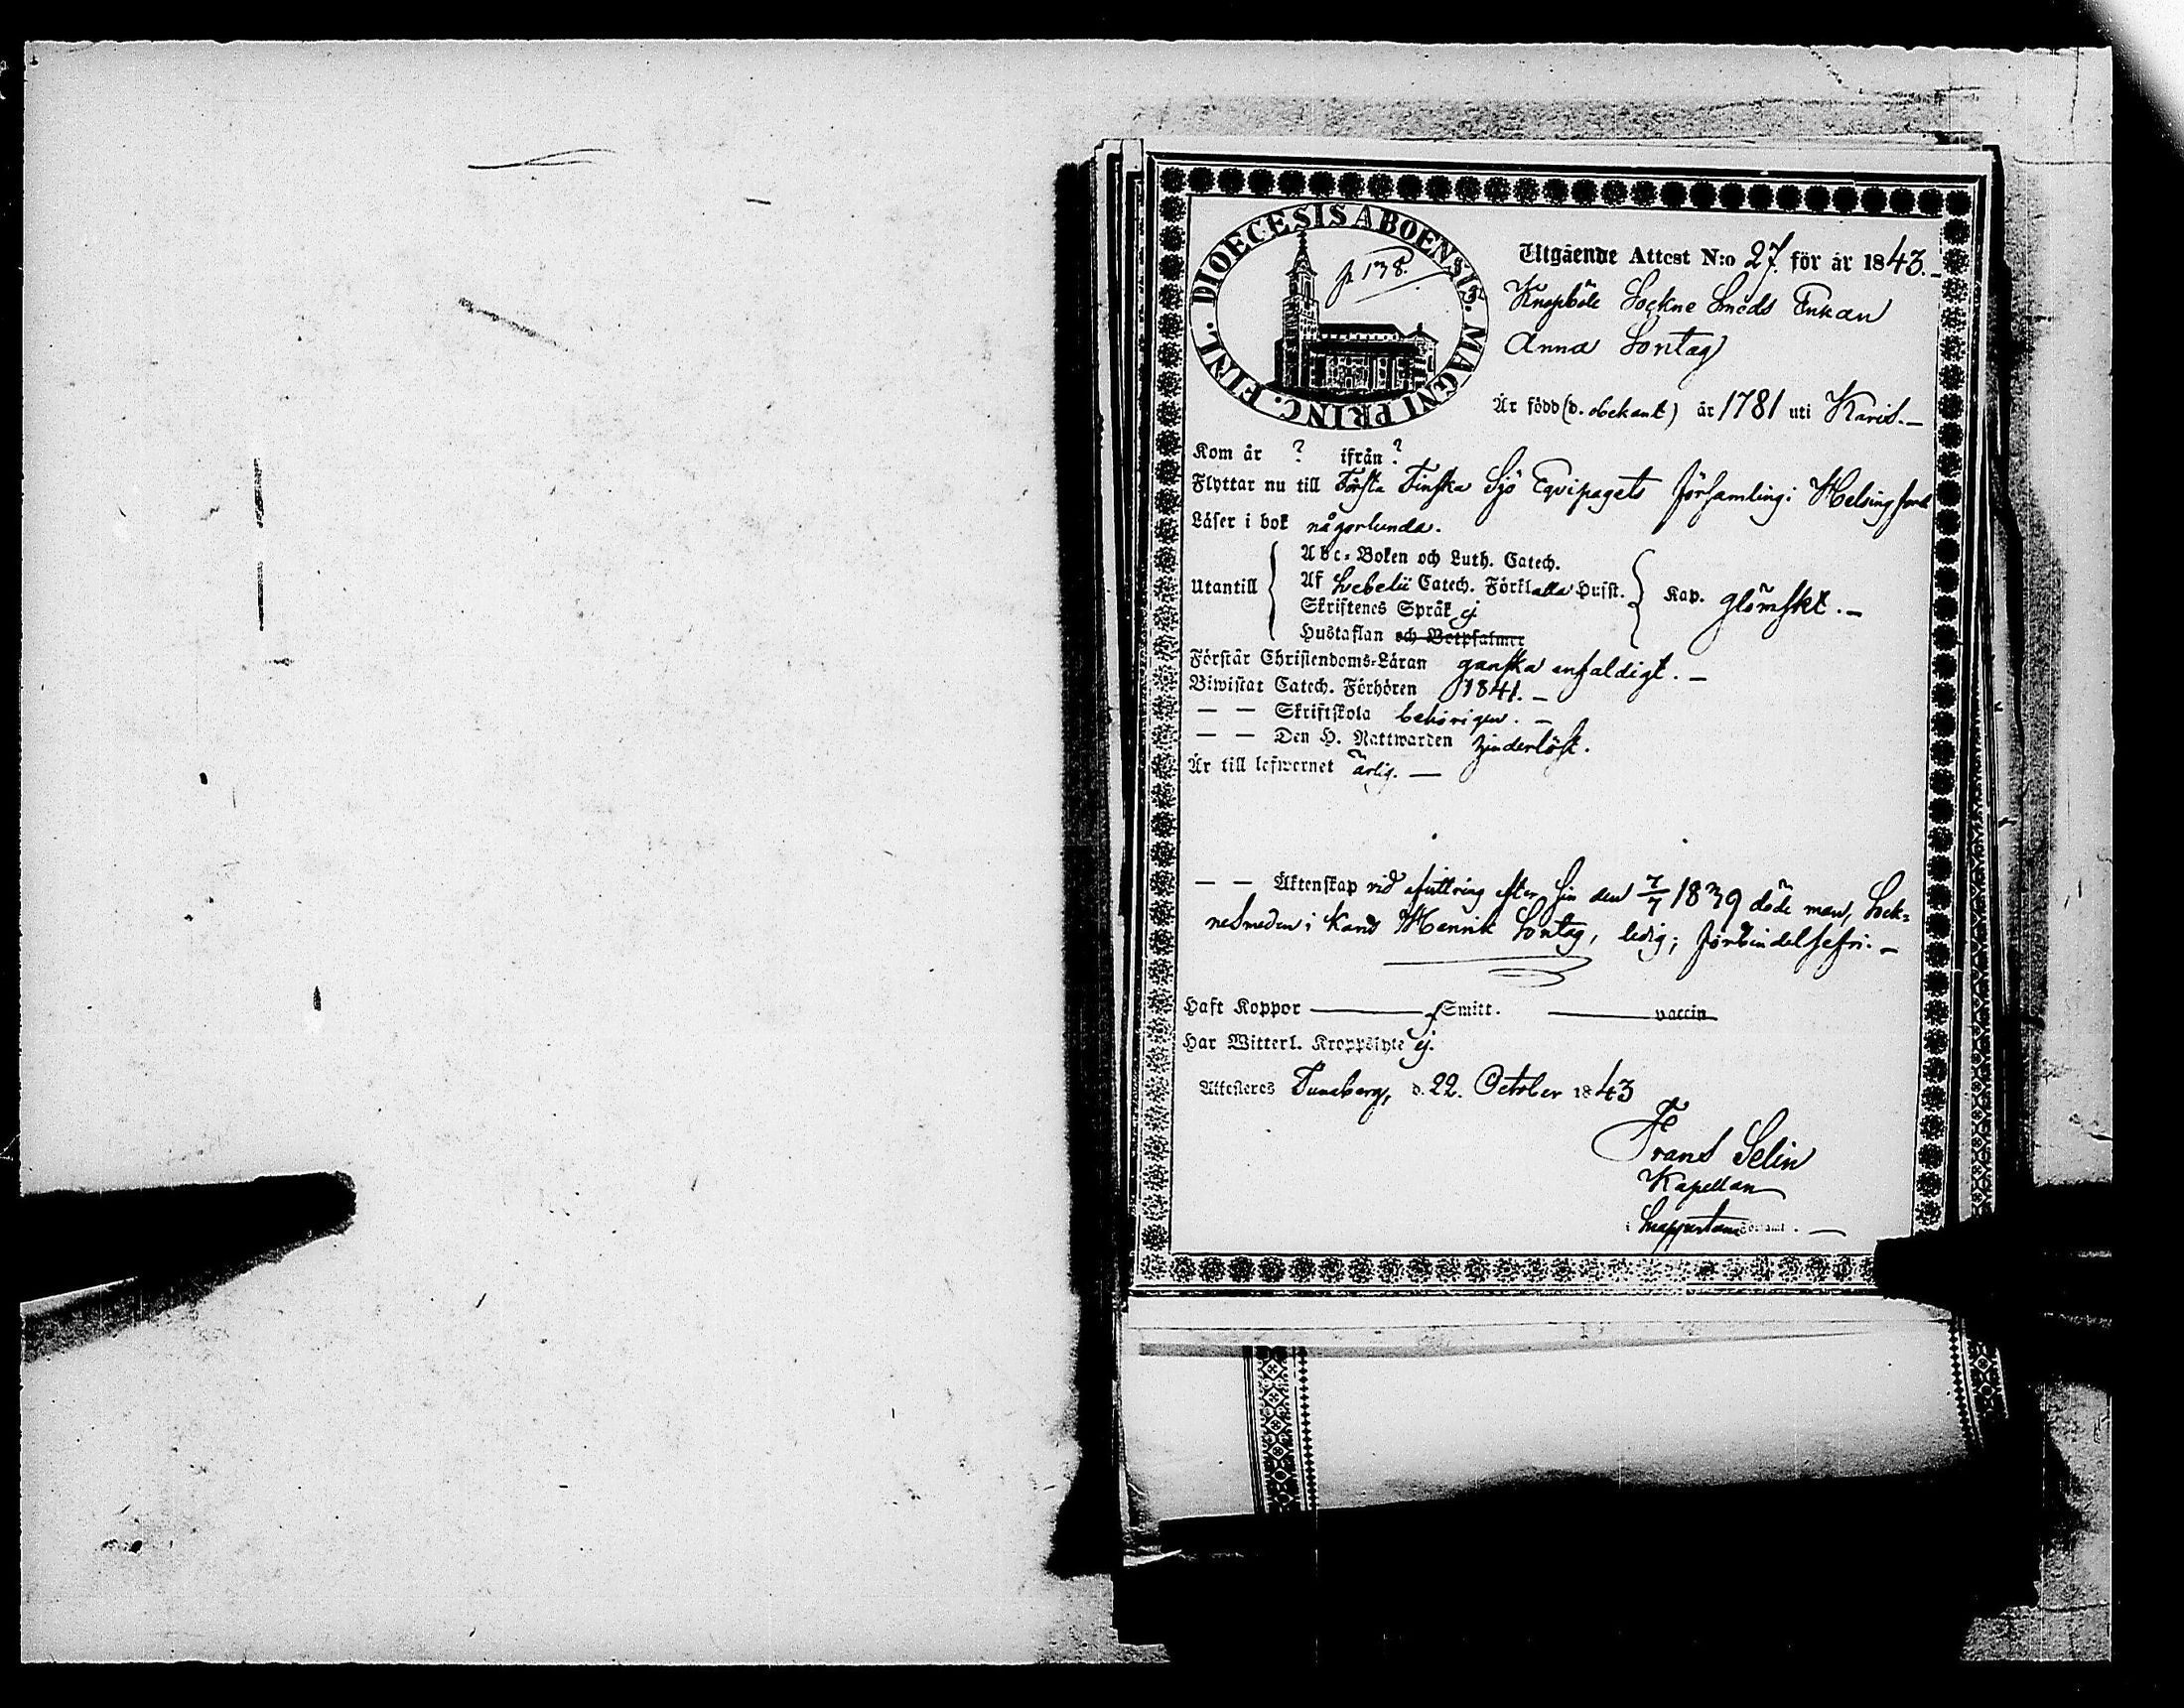 DIOECESIS ABOENSIS. MAGNI PRINC. FINL.
p 138.
Utgående Attest N:o 27. för år 1843.-
Knapböle Sockne Smeds Enkan
Anna Sontag
Är född (d. obekant) år 1781 uti Karis.-
Kom år ? ifrån ?
Flyttar nu till Första Finska Sjö Eqvipagets församling i Helsingfors
Läser i bok någorlunda.
Utantill
Abc-Boken och Luth. Catech.
Af Svebelii Catech. Förkl alla Husst.
Skriftenes Språk ej
Hustaflan och Botpsalmer
Kap. glömskt.-
Förstår Christendoms-Läran ganska enfaldigt.-
Biwistat Catech. Förhören 1841.-
— — Skriftskola behörigen.-
— — Den H. Nattwarden hinderlöst.
Är till lefwernet ärlig.—
— — Äktenskap vid afvittring efter sin den 7/7 1839 döde man, Sock-
nesmeden i Karis Henrik Sontag, ledig; förbindelsefri.-
Haft Koppor — Smitt. — vaccin
Har Witterl. Kroppslyte ej.
Attesteres Tuneberg, d. 22. October 1843
Frans Selin
Kapellan
i Snappertuna Församl.—